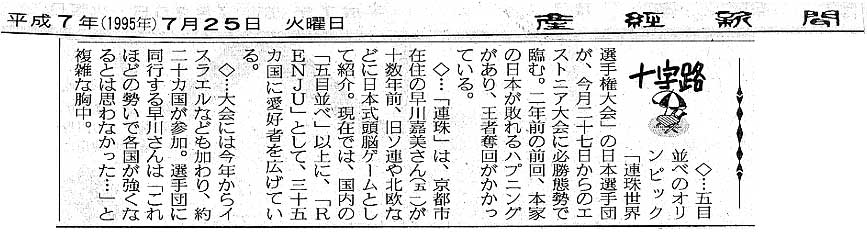 平成7年(1995年)7月25日 火曜日 産經新聞
十字路
◇…五目
並べのオリ
ンピック
「連珠世界
選手権大会」の日本選手団
が、今月二十七日からのエ
ストニア大会に必勝態勢で
臨む。二年前の前回、本家
の日本が敗れるハプニング
があり、王者奪回がかかっ
ている。
◇…「連珠」は、京都市
在住の早川嘉美さんが
十数年前、旧ソ連や北欧な
どに日本式頭脳ゲームとし
て紹介。現在では、国内の
「五目並べ」以上に、「R
ENJU」として、三十五
カ国に愛好者を広げてい
る。
◇…大会には今年からイ
スラエルなども加わり、約
二十カ国が参加。選手団に
同行する早川さんは「これ
ほどの勢いで各国が強くな
るとは思わなかった…」と
複雑な胸中。